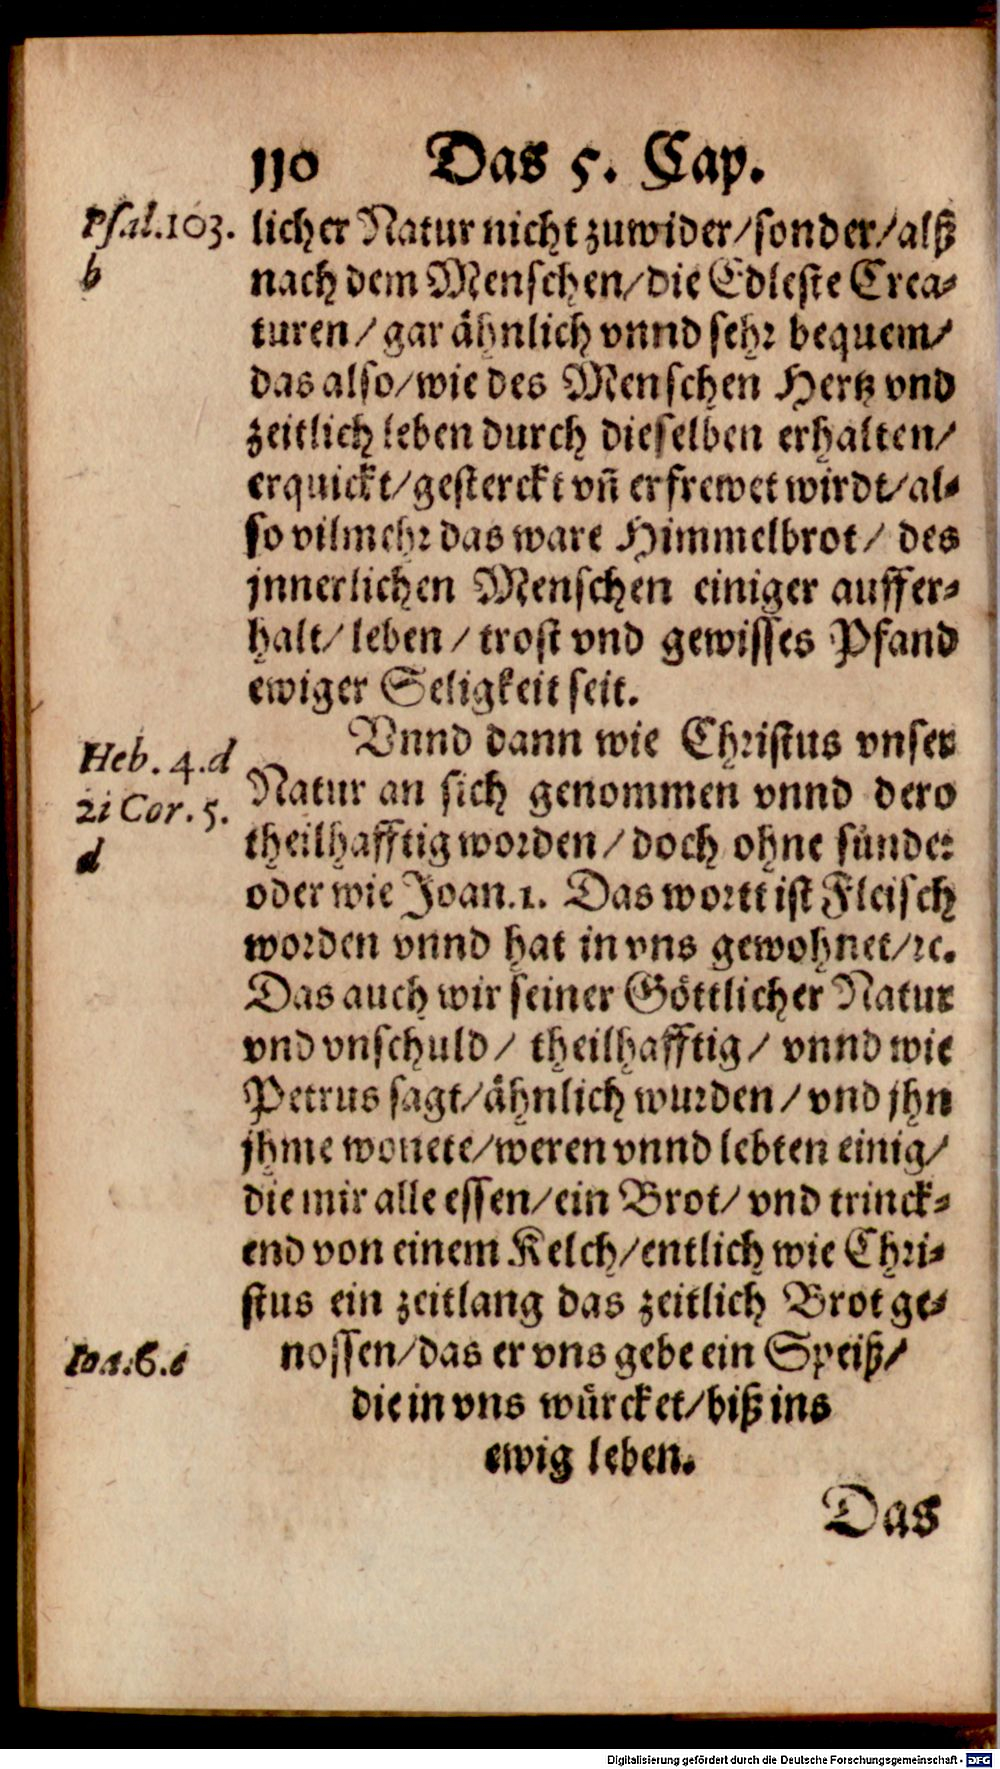 110 Das 5. Cap.
Psal.103.
b
licher Natur nicht zuwider/sonder/alß
nach dem Menschen/die Edleste Crea-
turen/gar ähnlich vnnd sehr bequem/
das also/wie des Menschen Hertz vnd
zeitlich leben durch dieselben erhalten/
erquickt/gesterckt vñ erfrewet wirdt/al-
so vilmehr das ware Himmelbrot/ des
jnnerlichen Menschen einiger auffer-
halt/ leben/ trost vnd gewisses Pfand
ewiger Seligkeit seit.
Heb. 4.d
2i Cor. 5.
d
Vnnd dann wie Christus vnser
Natur an sich genommen vnnd dero
theilhafftig worden/ doch ohne sünde:
oder wie Joan.1. Das wortt ist Fleisch
worden vnnd hat in vns gewohnet/ꝛc.
Das auch wir seiner Göttlicher Natur
vnd vnschuld/ theilhafftig/ vnnd wie
Petrus sagt/ähnlich wurden/vnd jhn
jhme wonete/weren vnnd lebten einig/
die mir alle essen/ein Brot/ vnd trinck-
end von einem Kelch/entlich wie Chri-
stus ein zeitlang das zeitlich Brot ge-
Ioa.6.e
nossen/das er vns gebe ein Speiß/
die in vns würcket/biß ins
ewig leben.
Das
Digitalisierung gefördert durch die Deutsche Forschungsgemeinschaft - DFG